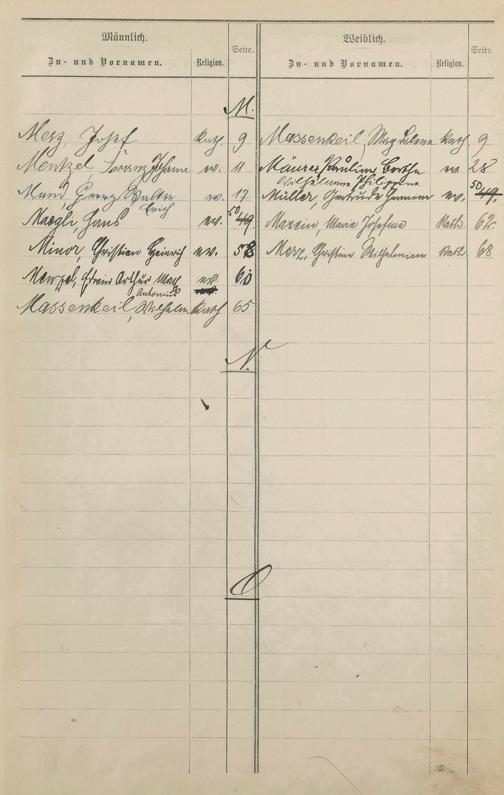 Männlich.
Zu- und Vornamen. Religion. Seite.
M.
Merz, Josef kath. 9
Mentzel, Johann ev. 11
Mund, Georg Walter ev. 17
Erich
Maegli Hans ev. 50 49.
Minor, Christian Heinrich ev. 58
Menzel, Arthur Max ev 60
Massenkeil, Wilhelm Kath 65
Antonius
N.
O
Weiblich.
Zu- und Vornamen. Religion. Seite.
Massenkeil, Magdalena Kath 9
Mäurer, Pauline Bertha ev 28
Wilhelmine Philippine
Müller, Gertrude ev. 50 49.
Maria Josefine Kath. 62
Merz, Christine Wilhelmine Kath. 68